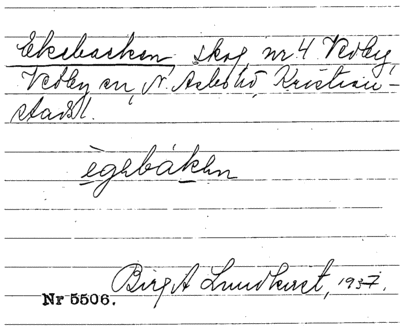 Eksbacken, skog, nr 4 Vedby,
Vedby sn, N. Åsbo hd, Kristian-
stads l.
ègebákən
Birgit Lundkvist, 1937.
Nr 5506.